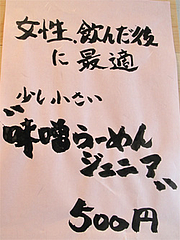 女性、飲んだ後
に最適
少し小さい
"味噌らーめん
ジュニア"
500円